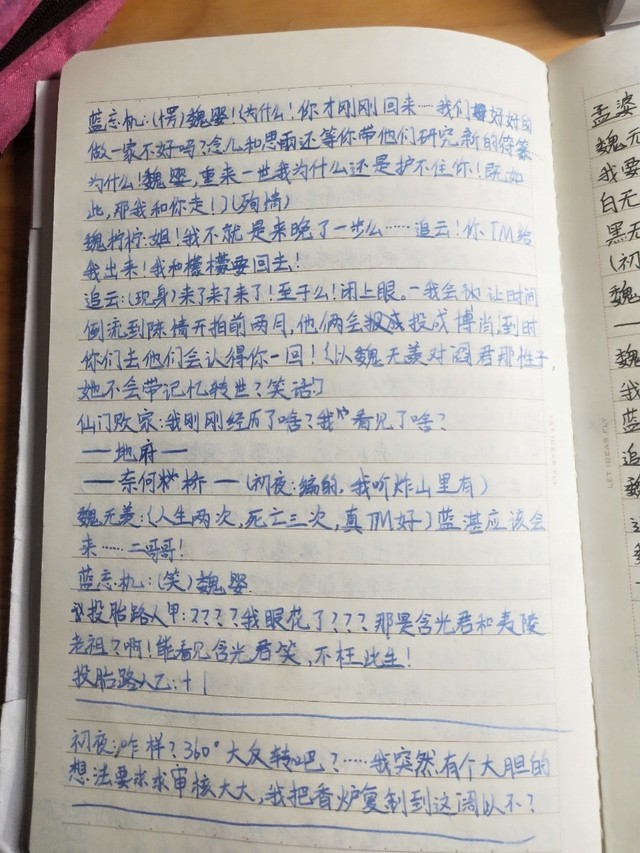 蓝忘机:(愣)魏婴!(为什么!你才刚刚回来……我们好好的
做一家不好吗?念儿和思雨还等你带他们研究新的符篆…
为什么!魏婴,重来一世我为什么还是护不住你!既如
此,那我和你走!)(殉情)
魏柠柠:姐!我不就是来晚了一步么……追云!你TM给
我出来!我和檬檬要回去!
追云:(现身)来了来了来了!至于么!闭上眼。一我会让时间
倒流到陈情开拍前两月,他俩会投成博肖,到时
你们去他们会认得你一回!(以魏无羡对阎君那性子,
她不会带记忆转世?笑话)
仙门败家:我刚刚经历了啥?我tm看见了啥?
—地府—
—奈何桥—(初夜:编的,我听炸山里有)
魏无羡:(人生两次,死亡三次,真TM好)蓝湛应该会
来……二哥哥!
蓝忘机:(笑)魏婴.
投胎路人甲:????我眼花了???那是含光君和夷陵
老祖?啊!能看见含光君笑,不枉此生!
投胎路人乙:+1
初夜:咋样?360°大反转吧?……我突然有个大胆的
想法要求求审核大大,我把香炉复制到这阔以不?
孟婆
魏无
我要
白无
黑无
(初
魏
魏
我
蓝
追
魏
LET IDEAS FLY